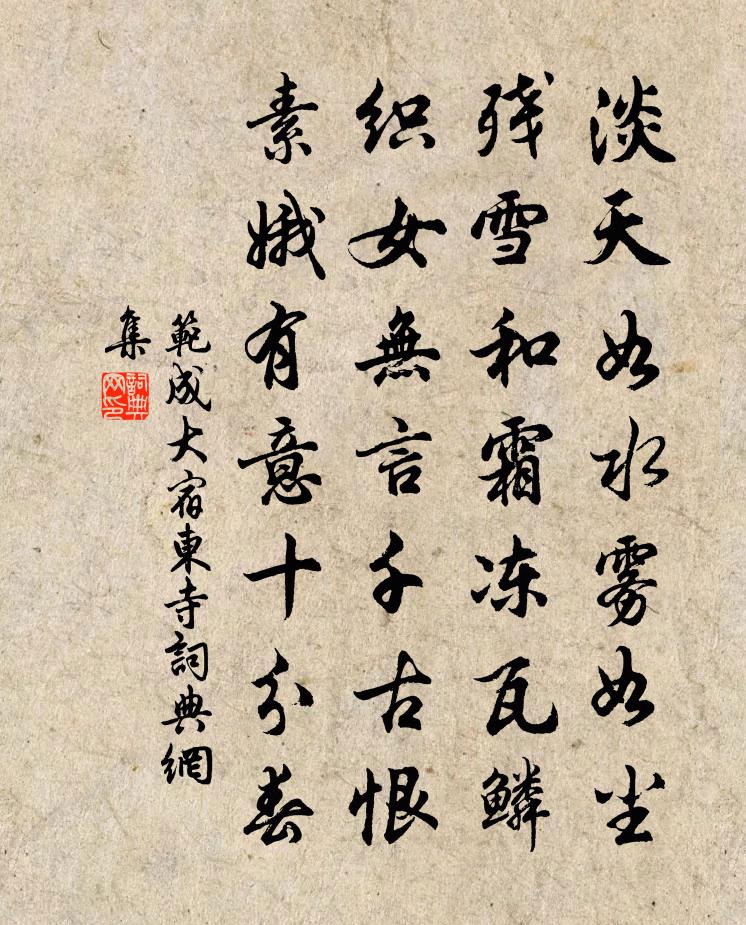 淡天如水雾如尘
残雪和霜冻瓦鳞
织女無言千古恨
素娥有意十分春
範成大宿東寺詞典網
集
詞典
网印